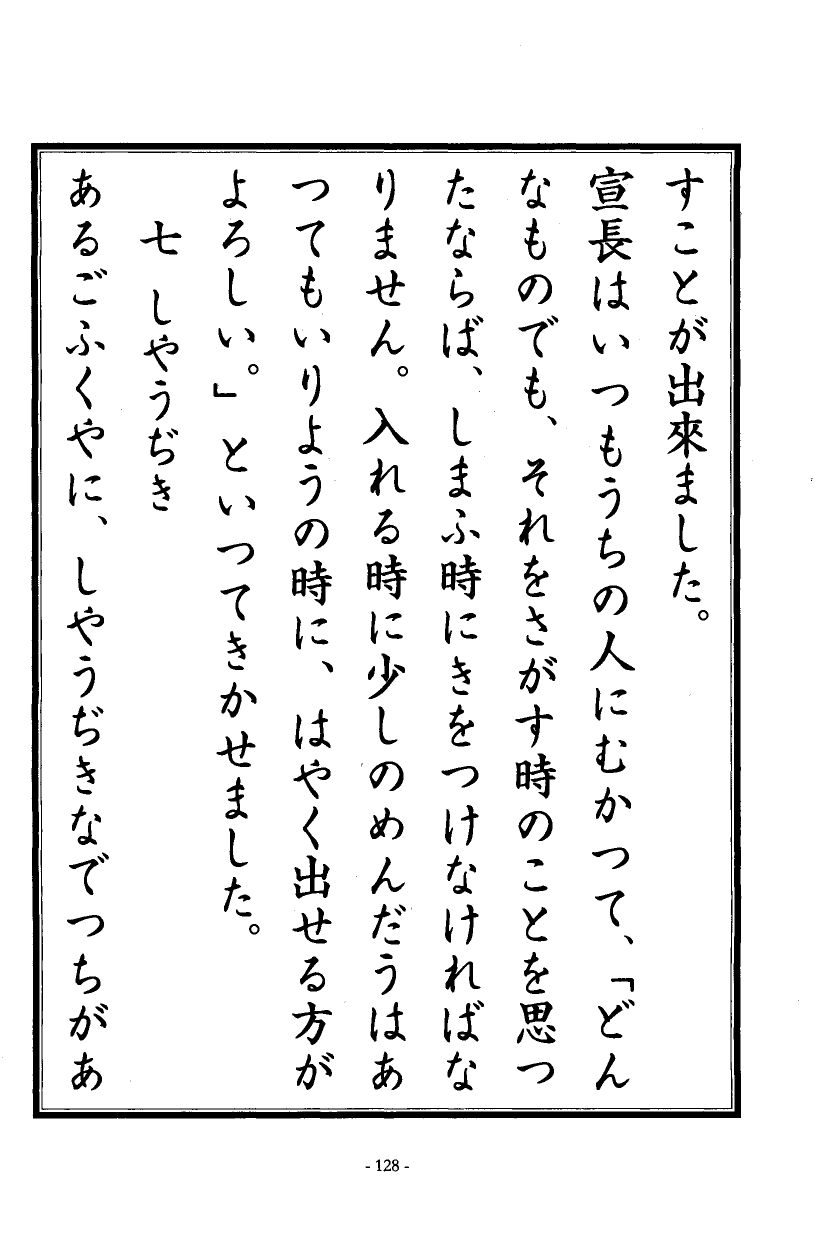 すことが出來ました。
宣長はいつもうちの人にむかつて、「どん
なものでも、それをさがす時のことを思つ
たならば、しまふ時にきをつけなければな
りません。入れる時に少しのめんだうはあ
つてもいりようの時に、はやく出せる方が
よろしい。」といつてきかせました。
七 しやうぢき
あるごふくやに、しやうぢきなでつちがあ
- 128 -